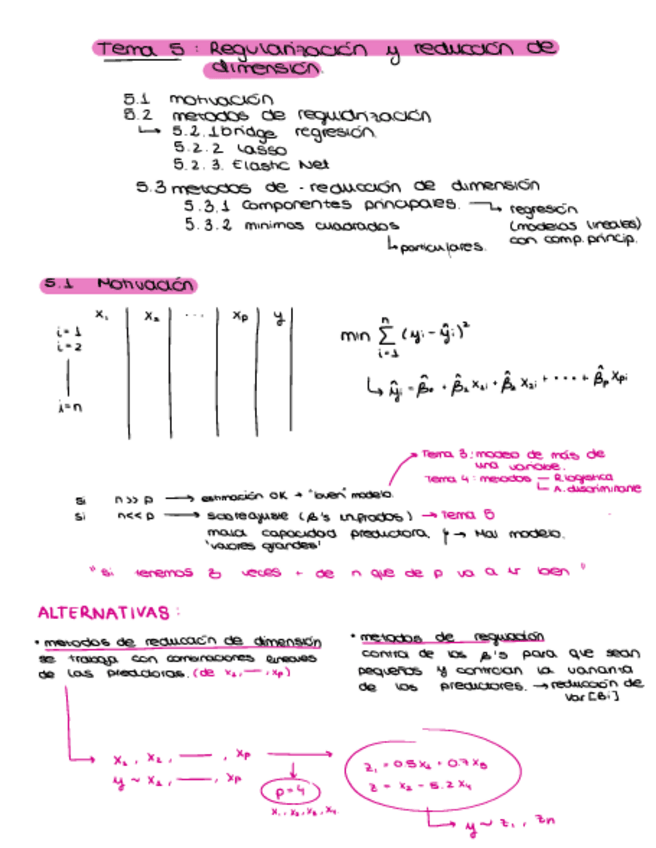 Tema 5: Regularización y reducción de
dimensión
5.1 motivación
5.2 metodos de regularización
↳ 5.2.1 bridge regresión
5.2.2 Lasso
5.2.3. Elastic Net
5.3 metodos de - reducción de dimensión
5.3.1 componentes principales. → regresión
(modelos lineales)
con comp. princip.
5.3.2 minimos cuadrados
↳ particulares.
5.1 Motivación
x₁ x₂ ... xp y
i=1
i=2
i=n
min Σ (yi - ŷi)²
n
i=1
↳ ŷi = β̂₀ + β̂₁ x₁i + β̂₂ x₂i + .... + β̂p xpi
Tema 3: modelo de más de
una variable.
Tema 4: metodos — R. logistica
A. discriminante
si n >> p → estimación OK + "buen" modelo.
si n << p → sobreajuste (β's inflados) → Tema 5
mala capacidad predictora. → Mal modelo.
'valores grandes'
"si tenemos 3 veces + de n que de p va a ir bien"
ALTERNATIVAS:
• metodos de reducción de dimensión
se trabaja con combinaciones lineales
de las predictoras. (de x₁, —, xp)
• metodos de regulación
contra de los β's para que sean
pequeños y controlan la varianza
de los predictores. → reducción de
Var[Bi]
x₁, x₂, —, xp →
y ~ x₁, —, xp
p=4
x₁, x₂, x₃, x₄
z₁ = 0.5x₁ + 0.7x₃
z = x₂ - 5.2x₄
↳ y ~ z₁, zn